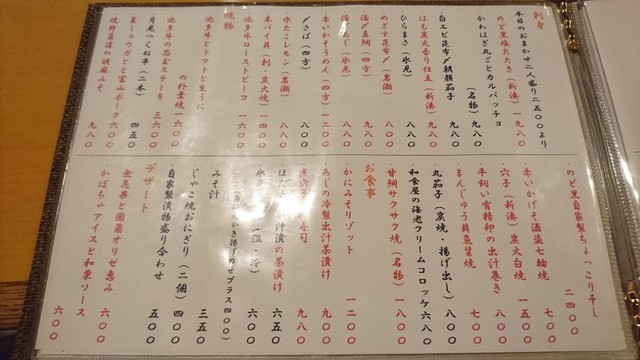 刺身
本日のおまかせ二人盛り二五〇〇より
のど黒塩たたき(新湊)一九八〇
かわはぎ丸ごとカルパッチョ
(名物)九八〇
白エビ昆布〆 朝顔茄子 九八〇
はも炭火香り仕立(新湊)九八〇
ひらまさ(氷見)八八〇
めぎす昆布〆(黒瀬)八八〇
〆真鯛(四方)八八〇
(氷見)八八〇
赤いかそうめん(四方)一二〇〇
〆さば(四方)八八〇
水たこレモン(黒瀬)八八〇
本バイ貝(刺・炭火焼)一四〇〇
池多牛ローストビーフ 一六〇〇
焼物
池多牛とトマトと生うに
の朴葉焼 一六〇〇
池多牛の忍者ステーキ 三六〇〇
月光つくね串(二本)四五〇
夏ミョウガとと富山ポーク 六〇〇
焼野菜達の胡麻みそ 九八〇
のど黒自家製ちょっこり干し
二四〇〇
赤いかげそ酒盗七輪焼 七〇〇
穴子(新湊)炭火白焼 一五〇〇
平飼い有精卵の出汁巻き 八〇〇
まんじゅう貝魚醤焼 七〇〇
丸茄子(炭焼・揚げ出し)八〇〇
和食屋の海老クリームコロッケ 六八〇
甘鯛サクサク焼(名物)一八〇〇
お食事
かにみそリゾット 一二〇〇
あじの冷製出汁茶漬け 九〇〇
寿司 九八〇
出汁漬の茶漬け 六五〇
(温・冷)
かき揚げのせプラス四〇〇)
みそ汁 三五〇
じゃこ焼おにぎり(二個)四〇〇
自家製漬物盛り合わせ 五〇〇
デザート
無花果と国菌オリゼ恵み 六〇〇
かぼちゃアイスと和栗ソース
六〇〇